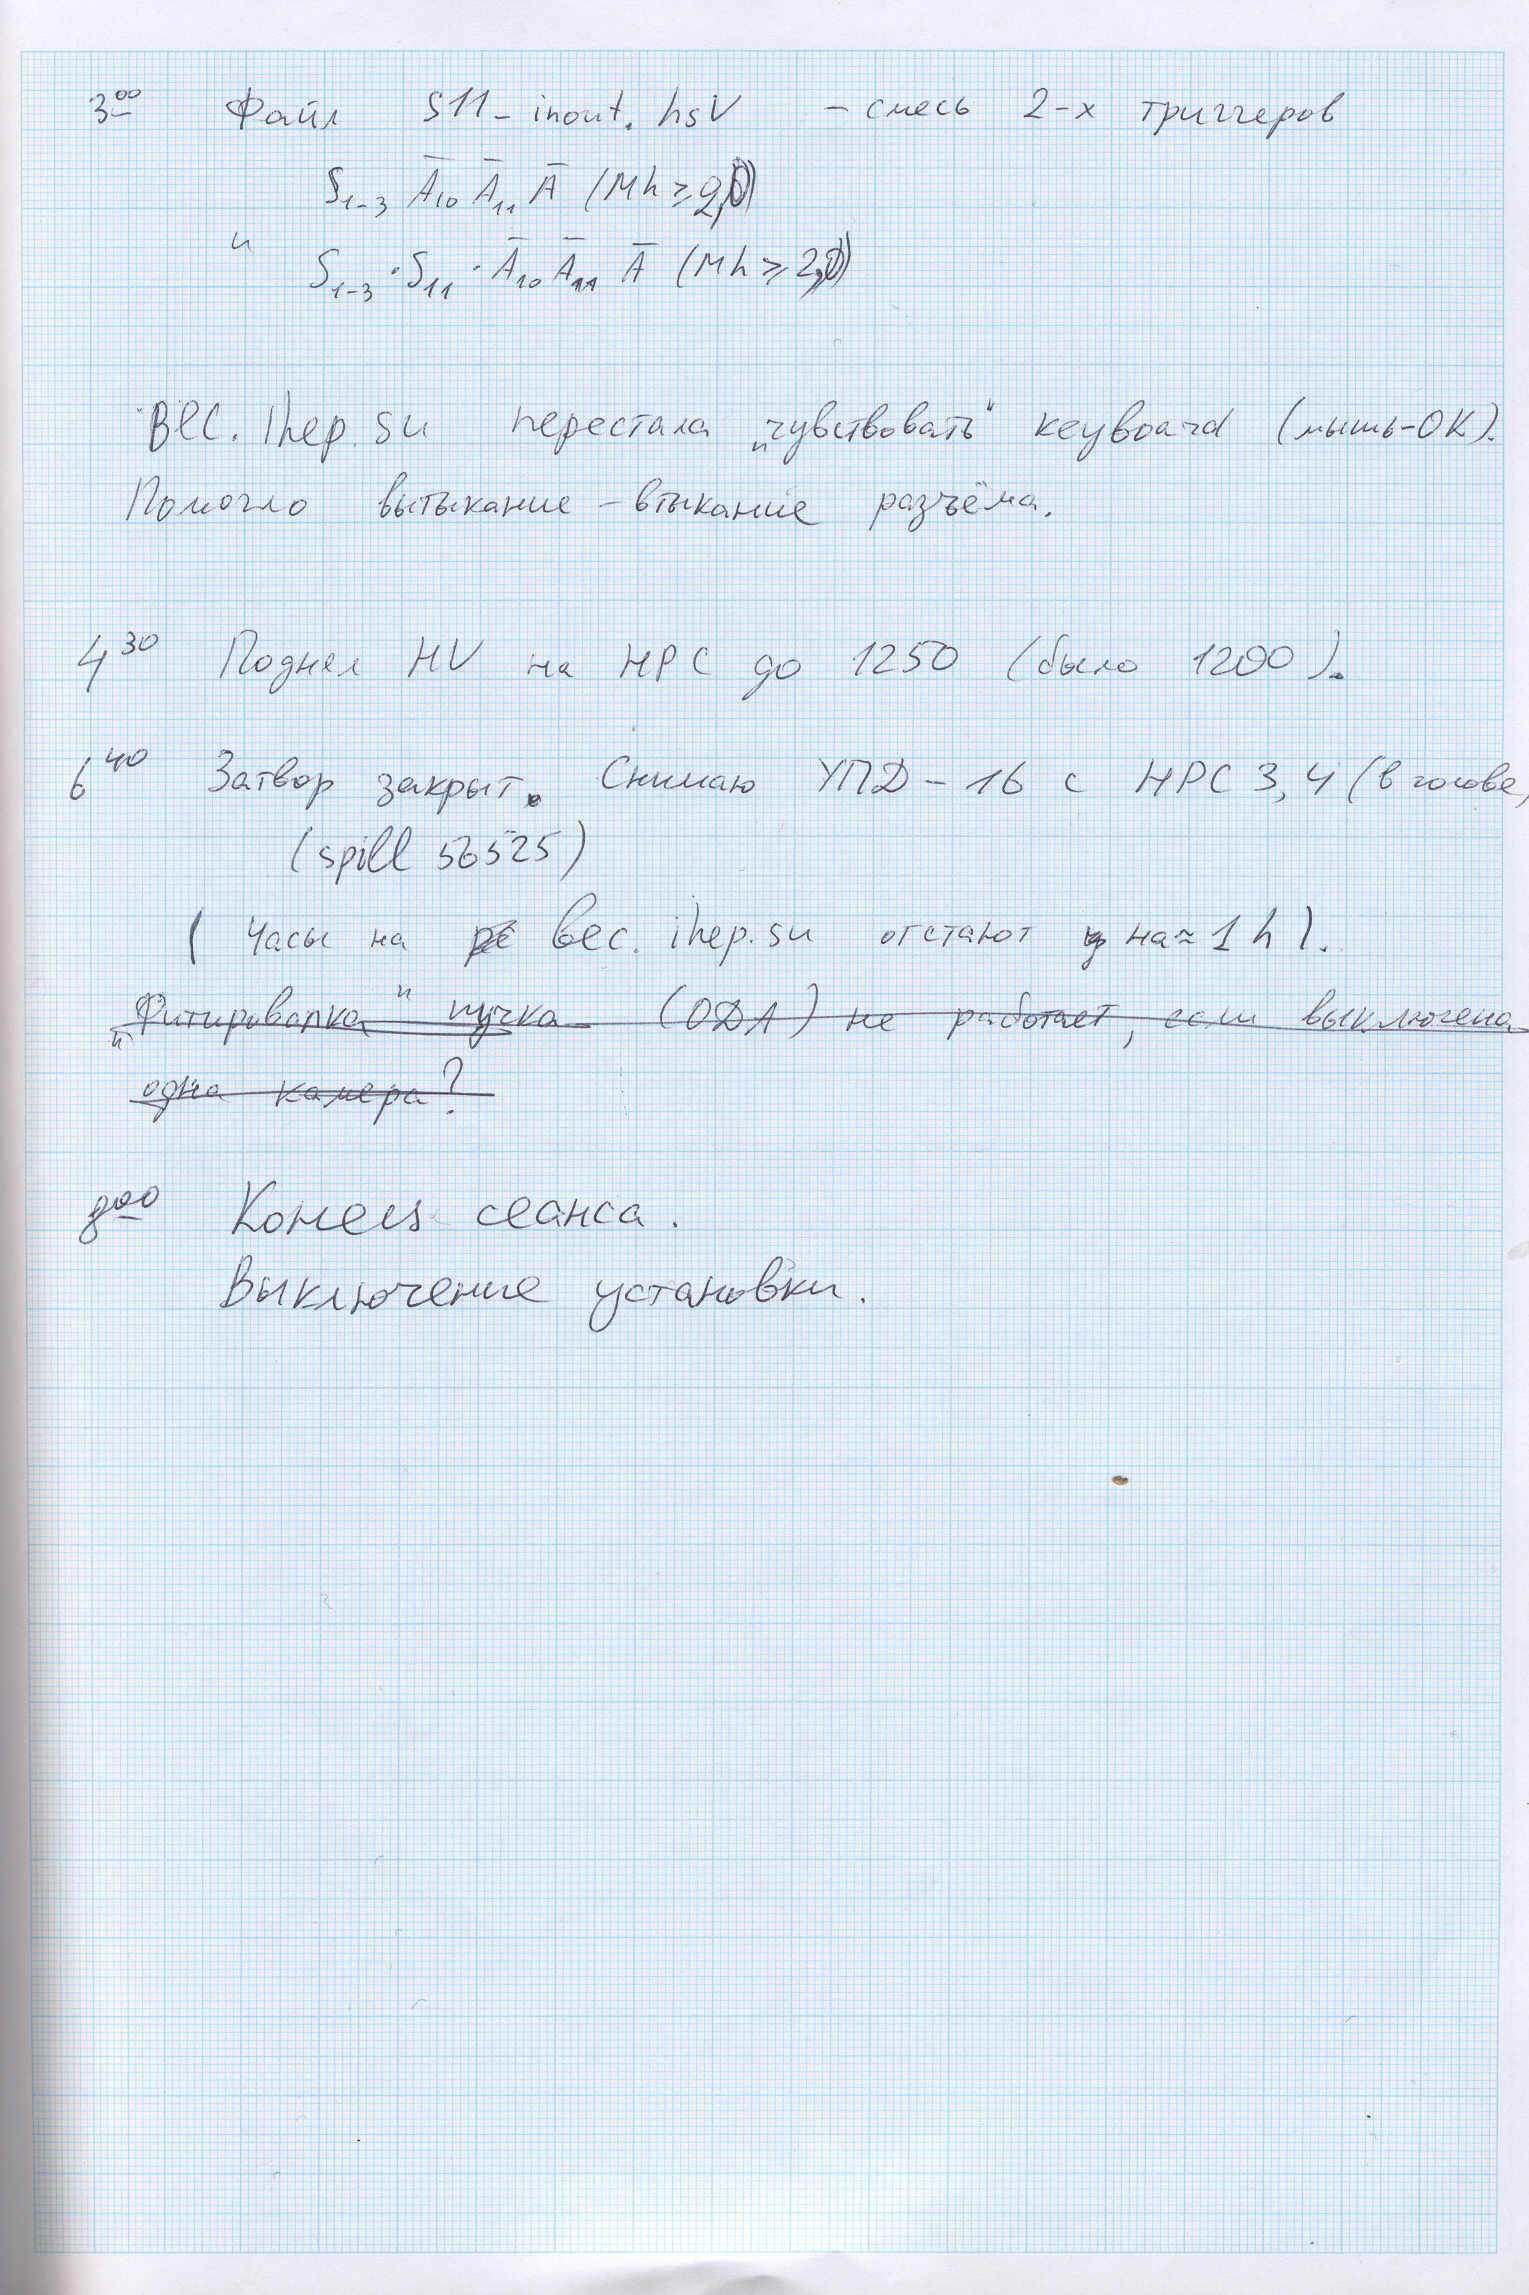 3⁰⁰ Файл S11_inout.hsv – смесь 2-х триггеров
S₁₋₃ A̅₁₀ A̅₁₁ A̅ (Mh ≥ 2,0)
и S₁₋₃ · S₁₁ · A̅₁₀ A̅₁₁ A̅ (Mh ≥ 2,0)
Bec.ihep.su перестала „чувствовать“ keyboard (мышь-OK).
Помогло вытыкание – втыкание разъёма.
4³⁰ Поднял HV на HPC до 1250 (было 1200).
6⁴⁰ Затвор закрыт. Снимаю УПД-16 с HPC 3,4 (в голове,
(spill 56525)
(Часы на bec.ihep.su отстают на ≈ 1 h).
„Фитировалка“ пучка (ОДА) не работает, если выключена
одна камера?
8⁰⁰ Конец сеанса.
Выключение установки.